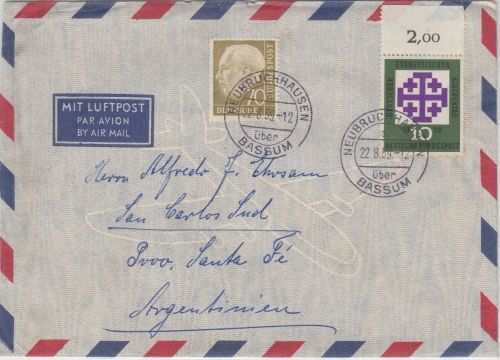 2,00
70
DEUTSCHE BUNDESPOST
EVANGELISCHER
DEUTSCHER
KIRCHENTAG
10
DEUTSCHE BUNDESPOST
NEUBRUCHHAUSEN
22.8.59-12
über
BASSUM
NEUBRUCHHAUSEN
22.8.59-12
über
BASSUM
MIT LUFTPOST
PAR AVION
BY AIR MAIL
Herrn Alfredo F.
San Carlos Sud
Prov. Santa Fé
Argentinien